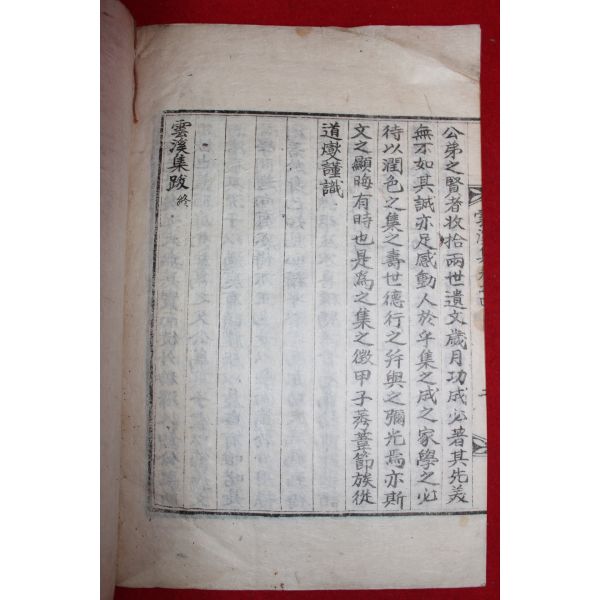 公弟之賢者收拾兩世遺文歲月功成必著其先美
無不如其誠亦足感動人於乎集之成之家學之必
待以潤色之集之壽世德行之幷與之彌光焉亦斯
文之顯晦有時也是爲之集之徵甲子蕤蓂節族從
道燮謹識
雲溪集跋 終
雲溪集卷之四